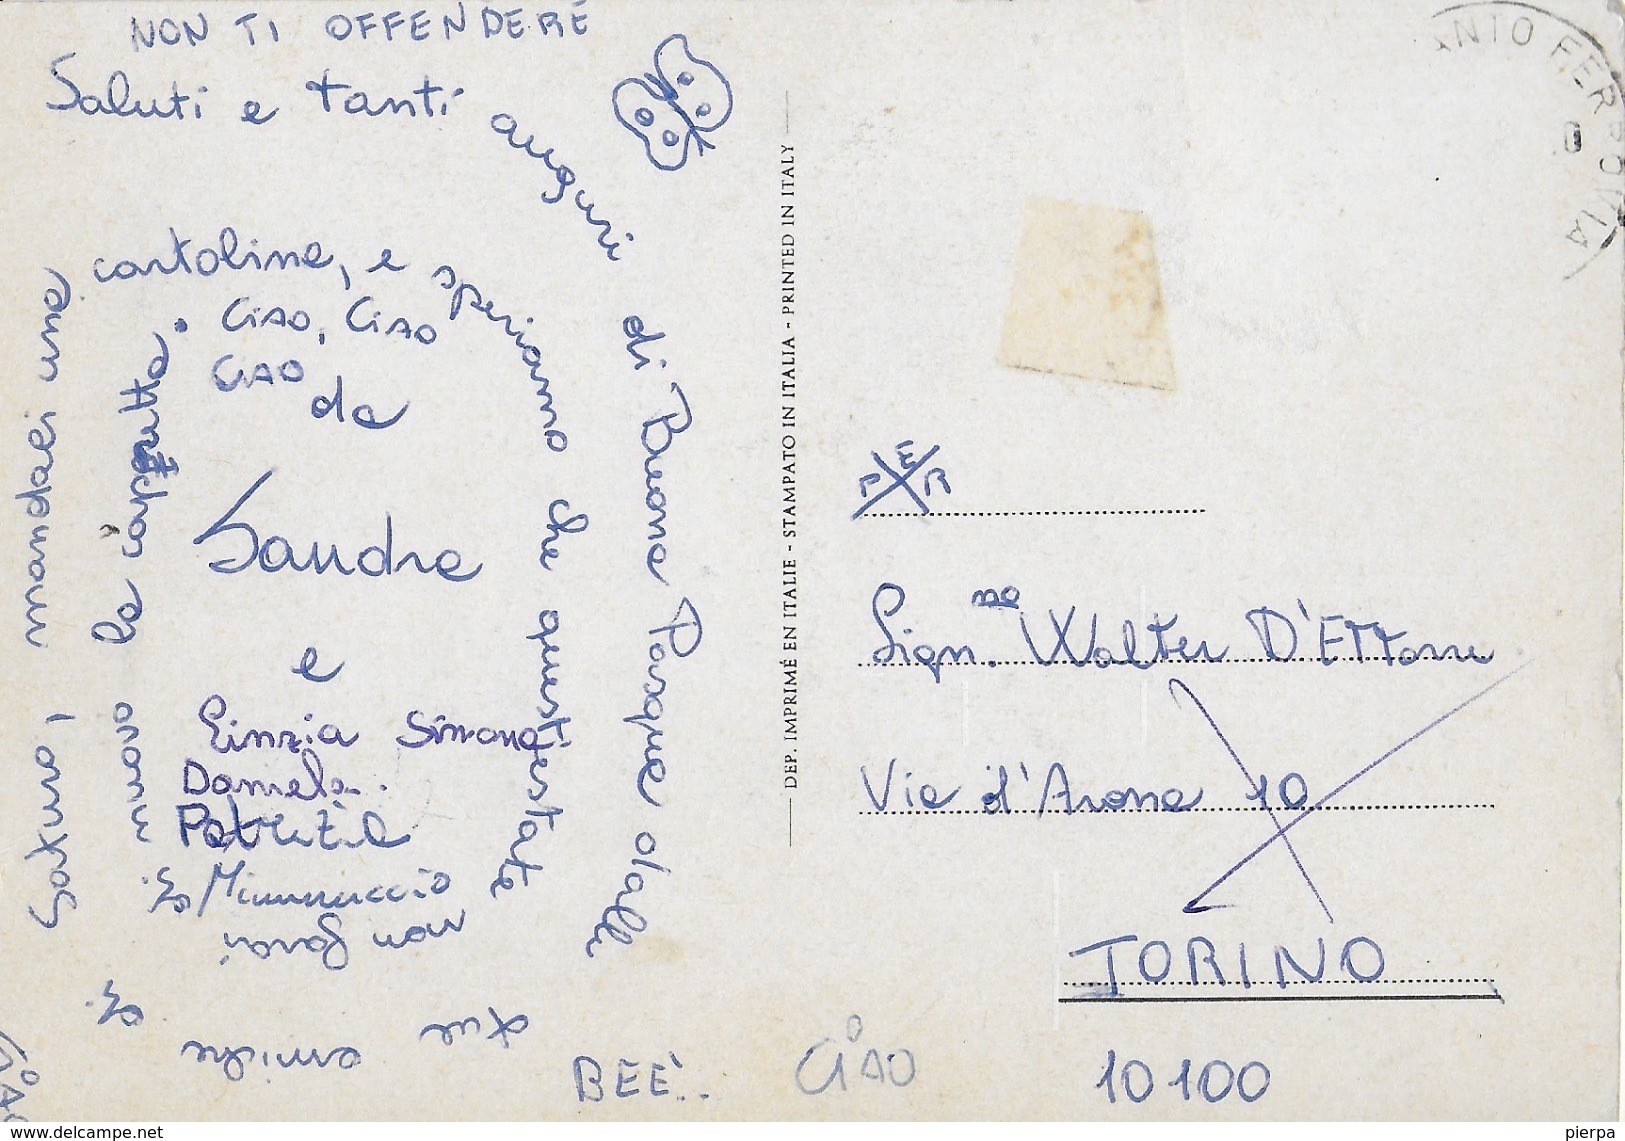 NON TI OFFENDERE
Saluti e tanti auguri di Buona Pasqua dalle
tue amiche di
Saturo, mandaci una cartolina, e speriamo che quest'estate
non farai
di nuovo la capretta.
CIAO, CIAO
CIAO
da
Sandra
e
Cinzia Simona
Daniela.
Patrizia
BEE'..
CIAO
DEP. IMPRIMÉ EN ITALIE - STAMPATO IN ITALIA - PRINTED IN ITALY
FERROVIA
PER
Sign.no Walter D'Ettorre
Via d'Arona 10
TORINO
10100
www.delcampe.net
pierpa